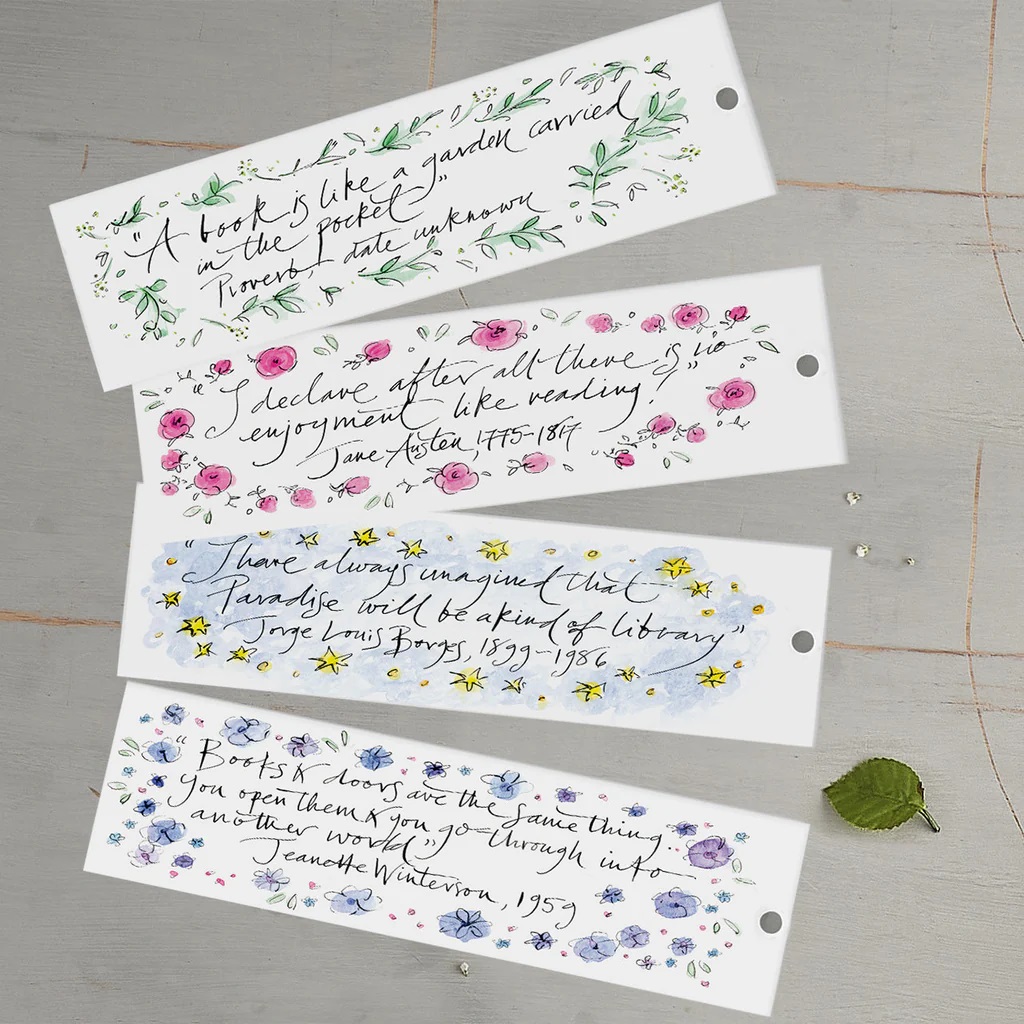 "A book is like a garden carried
in the pocket"
Proverb, - date unknown
"I declare after all there is no
enjoyment like reading!"
Jane Austen, 1775-1817
"I have always imagined that
Paradise will be a kind of library"
Jorge Louis Borges, 1899-1986
"Books & doors are the same thing.
You open them & you go through into
another world"
Jeanette Winterson, 1959